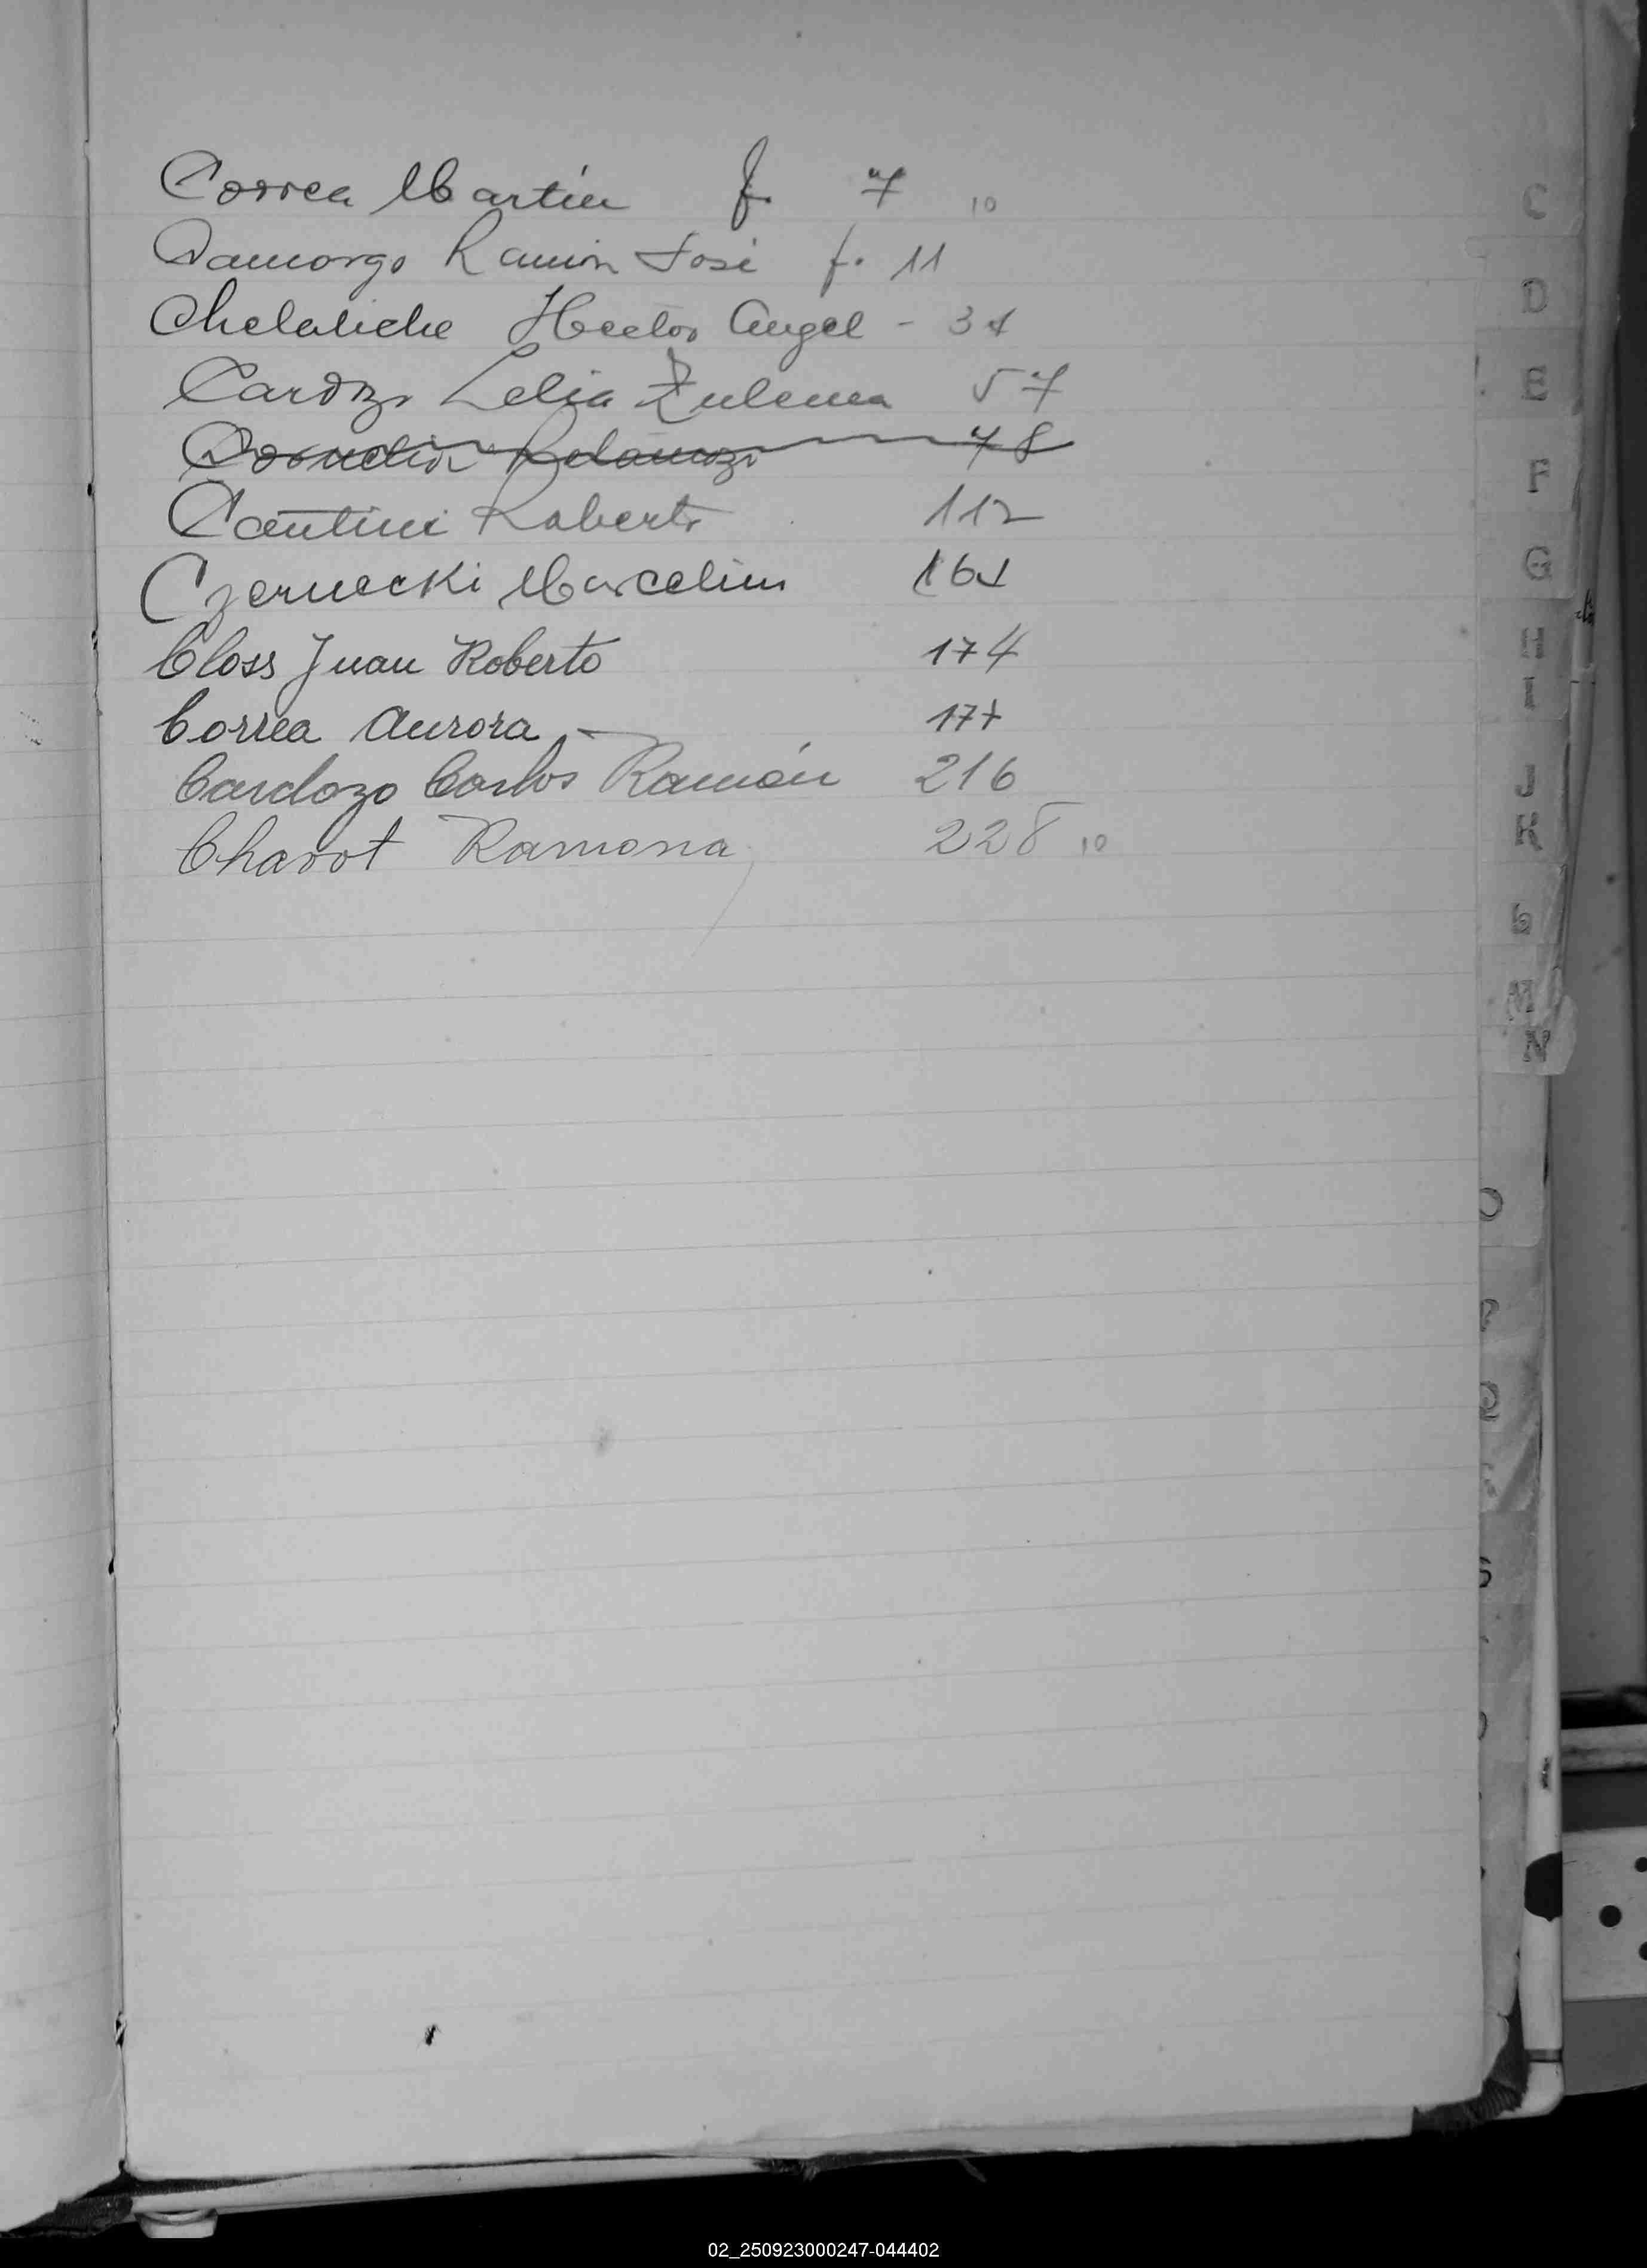 Correa Martin f. 7 10
Camargo Ramón José f. 11
Hector Angel - 31
Cardozo Lelia Zulema 57
78
Cantini Roberto 112
Czernecki Marcelino 161
Closs Juan Roberto 174
Correa Aurora 177
Cardozo Carlos Ramón 216
Chavot Ramona 228 10
C
D
E
F
G
H
I
J
K
L
M
N
O
P
Q
S
02_250923000247-044402